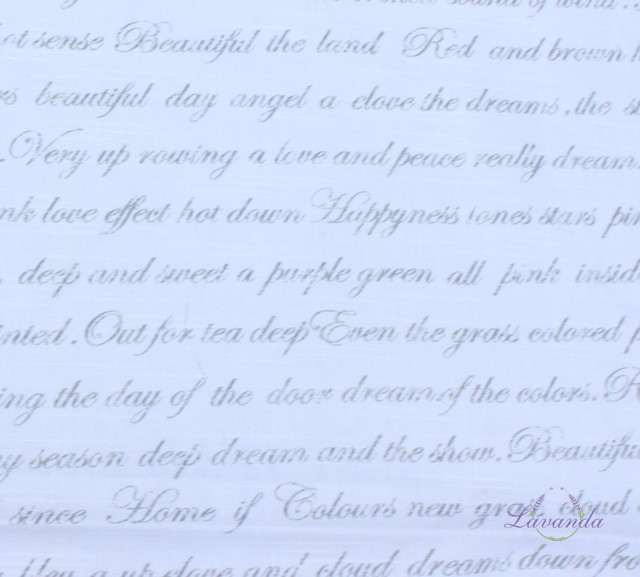 sound of wind.
ot sense Beautiful the land Red and brown
rs beautiful day angel a clove the dreams, the
. Very up rowing a love and peace really dream.
nk love effect hot down Happyness tones stars pin
. deep and sweet a purple green all pink insid
inted. Out for tea deep Even the grass colored p
ing the day of the door dream of the colors. R
y season deep dream and the show. Beautiful
since Home if Colours new great cloud
Lavanda
a up clove and cloud dreams down fro